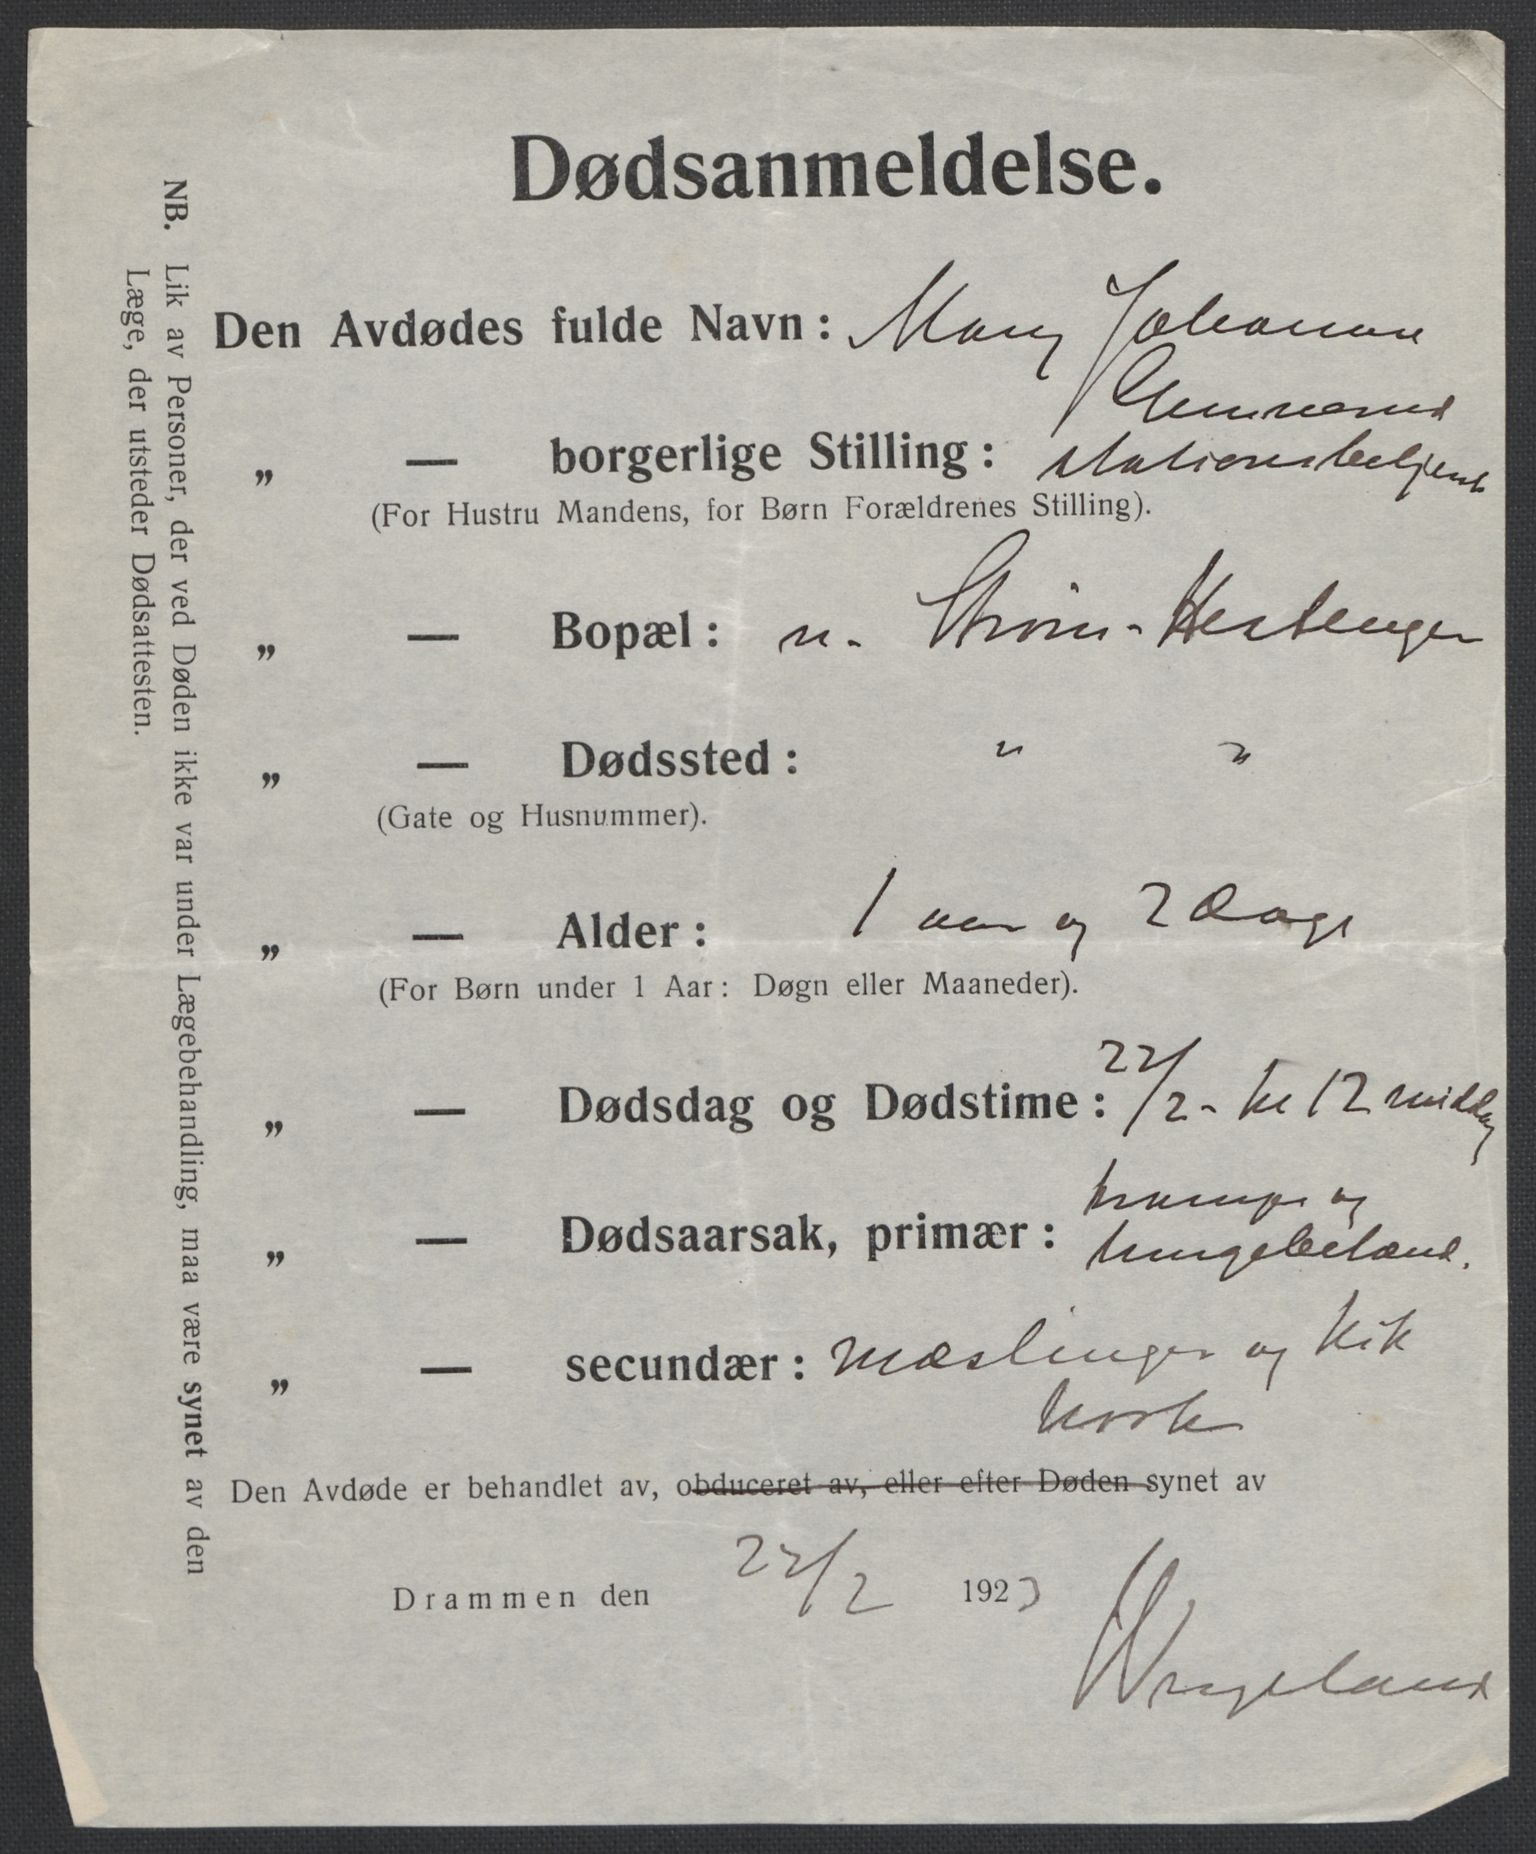 Dødsanmeldelse.
Den Avdødes fulde Navn: Mary Johanne
„ — borgerlige Stilling: stationsbetjent
(For Hustru Mandens, for Børn Forældrenes Stilling).
„ — Bopæl: n. Strøm-
„ — Dødssted: " "
(Gate og Husnummer).
„ — Alder: 1 aar og 2 Dage
(For Børn under 1 Aar: Døgn eller Maaneder).
„ — Dødsdag og Dødstime: 22/2 - kl 12 middag
krampe og
„ — Dødsaarsak, primær: lungebetænd.
„ — secundær: mæslinger og kik
hoste
Den Avdøde er behandlet av, obduceret av, eller efter Døden synet av
Drammen den 22/2 1923
Wergeland
NB. Lik av Personer, der ved Døden ikke var under Lægebehandling, maa være synet av den
Læge, der utsteder Dødsattesten.